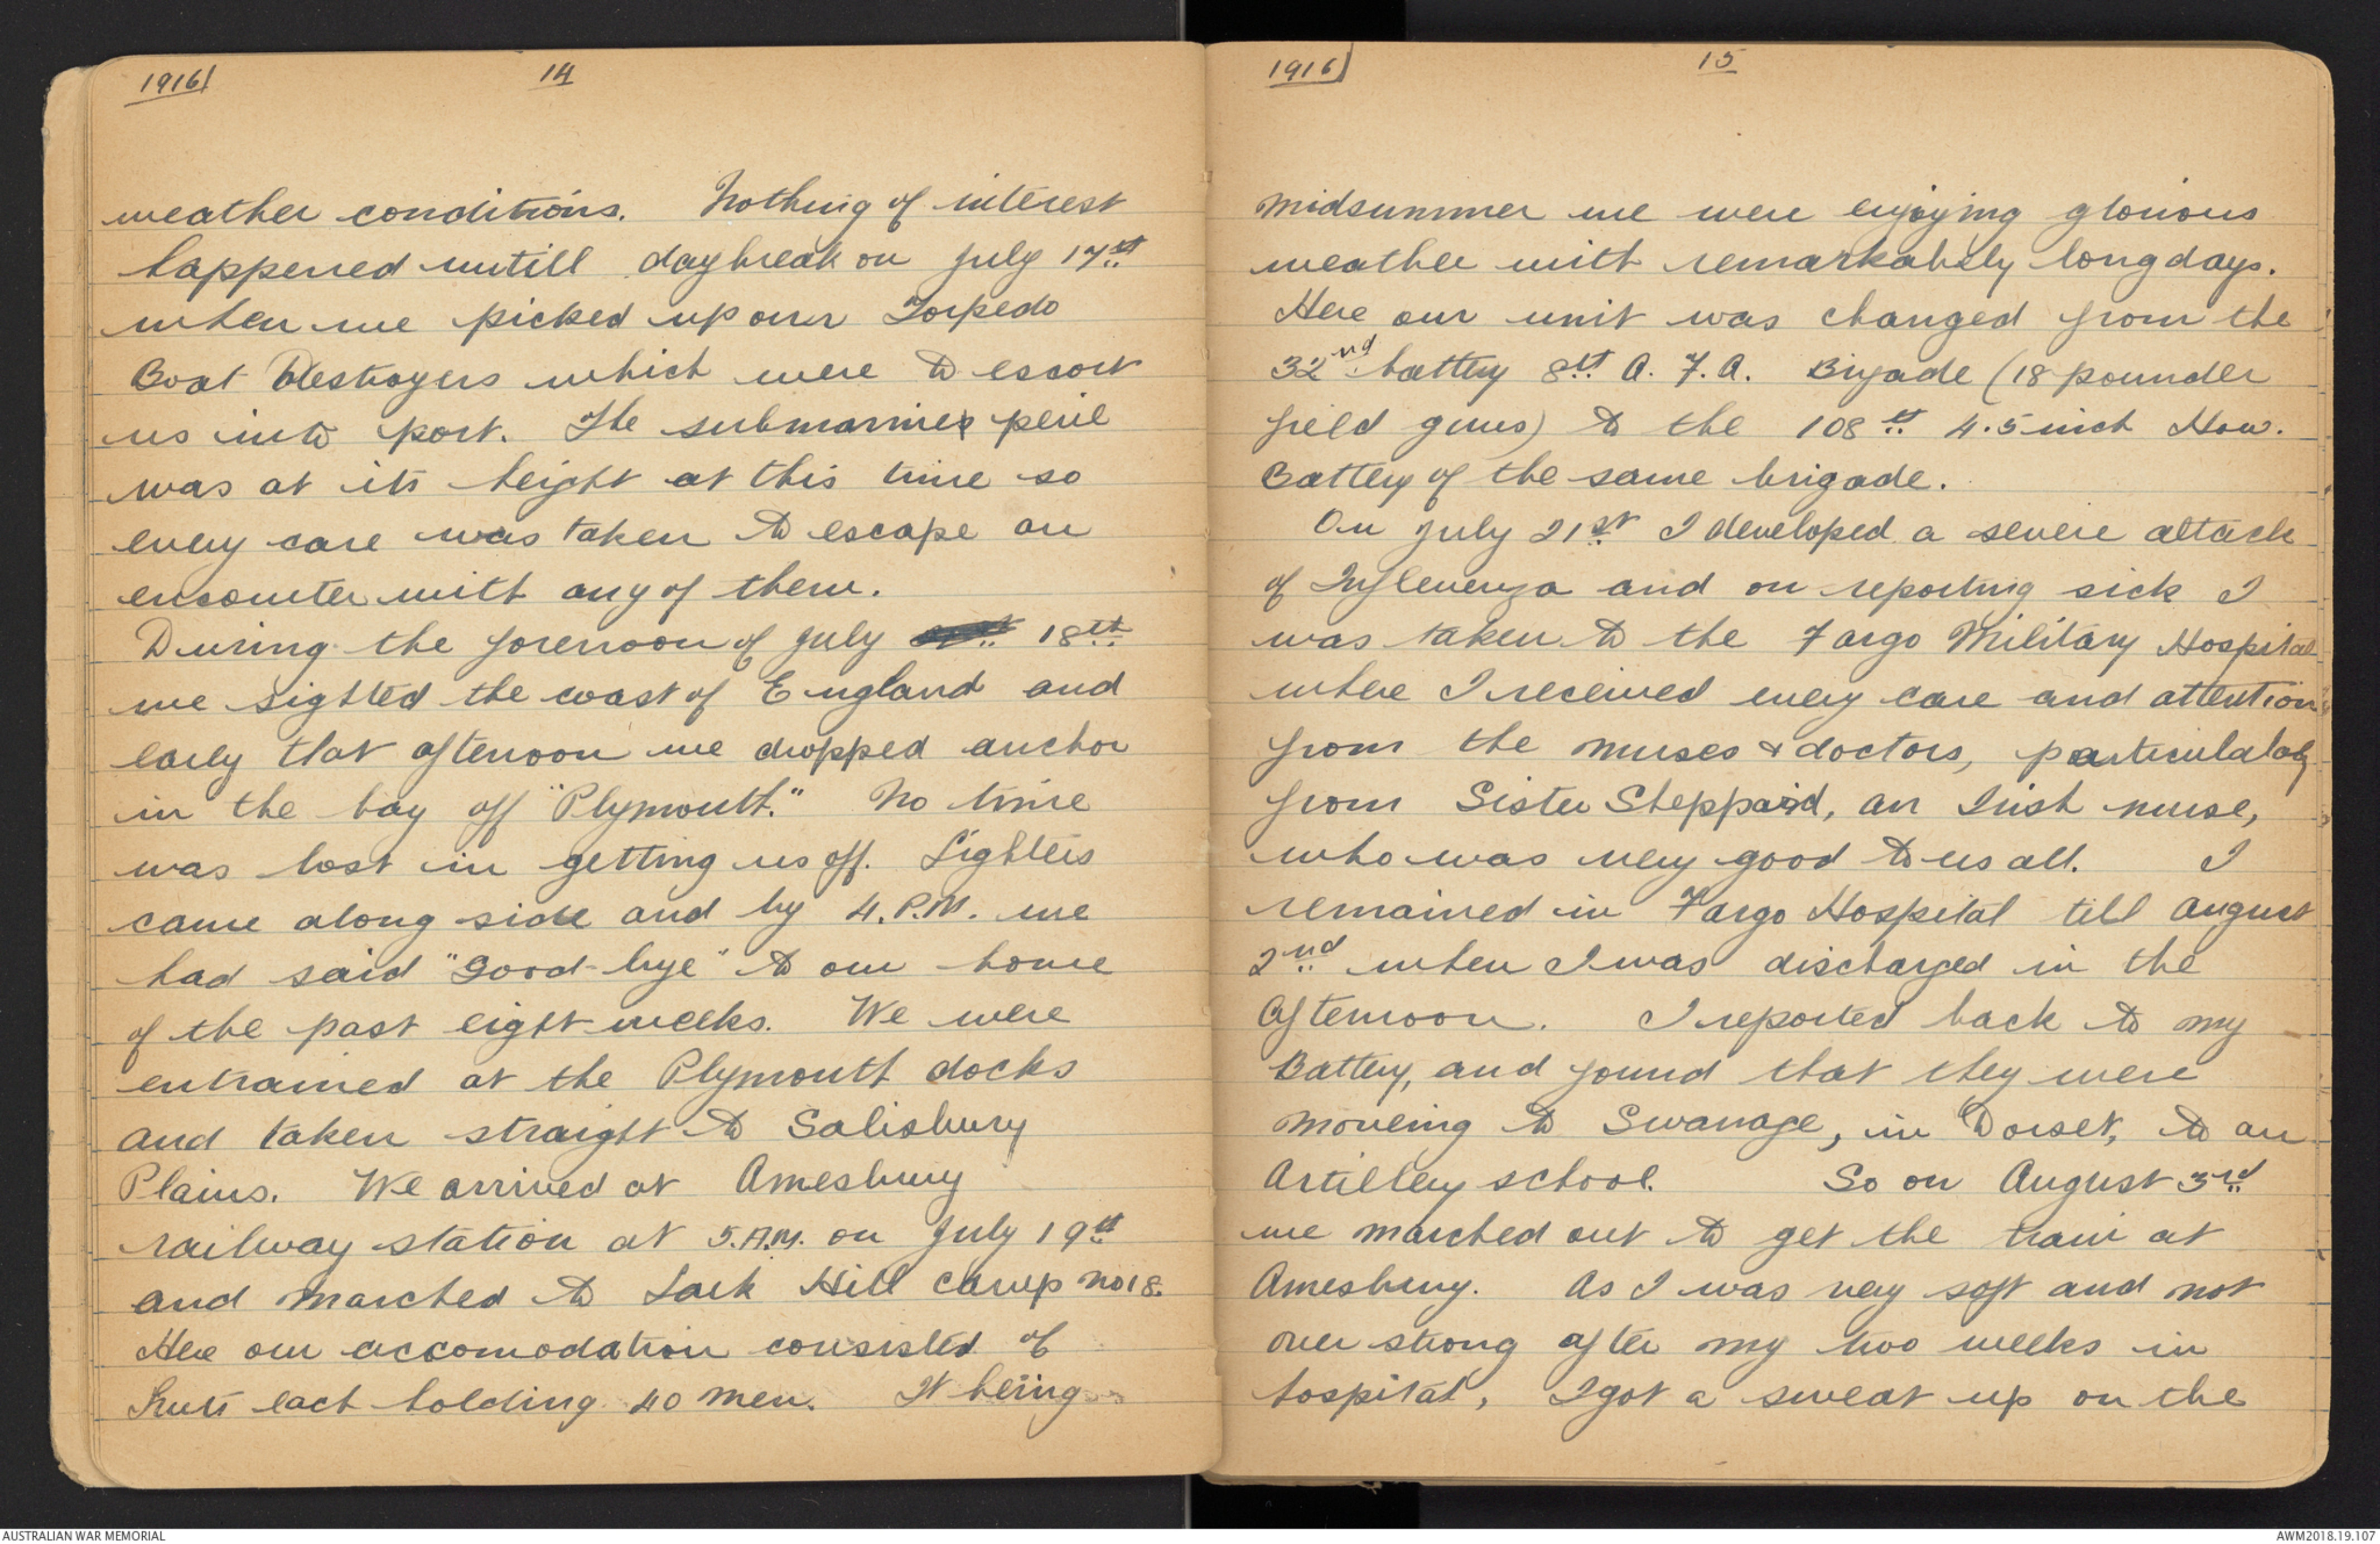 1916
14
weather conditions. Nothing of interest
happened untill daybreak on July 17th
when we picked up our Torpedo
Boat Destroyers which were to escort
us into port. The submarines peril
was at its height at this time so
every care was taken to escape an
encounter with any of them.
During the forenoon of July 18th
we sighted the coast of England and
early that afternoon we dropped anchor
in the bay off "Plymouth." No time
was lost in getting us off. Lighters
came along side and by 4.P.M. we
had said "Good-bye" to our home
of the past eight weeks. We were
entrained at the Plymouth docks
and taken straight to Salisbury
Plains. We arrived at Amesbury
railway station at 5.A.M. on July 19th
and marched to Lark Hill camp no 18.
Here our accomodation consisted of
huts each holding 40 men. It being
1916
15
midsummer we were enjoying glorious
weather with remarkably long days.
Here our unit was changed from the
32nd battery 8th A.F.A. Brigade (18 pounder
field guns) to the 108th 4.5 inch How.
Battery of the same brigade.
On July 21st I developed a severe attack
of Inflenenza and on reporting sick I
was taken to the Fargo Military Hospital
where I received every care and attention
from the nurses & doctors, particulalaly
from Sister Sheppard, an Irish nurse,
who was very good to us all. I
remained in Fargo Hospital till August
2nd when I was discharged in the
afternoon. I reported back to my
Battery, and found that they were
moveing to Swanage, in Dorset, to an
Artillery school. So on August 3rd
we marched out to get the train at
Amesbury. As I was very soft and not
over strong after my two weeks in
hospital, I got a sweat up on the
AUSTRALIAN WAR MEMORIAL
AWM2018.19.107